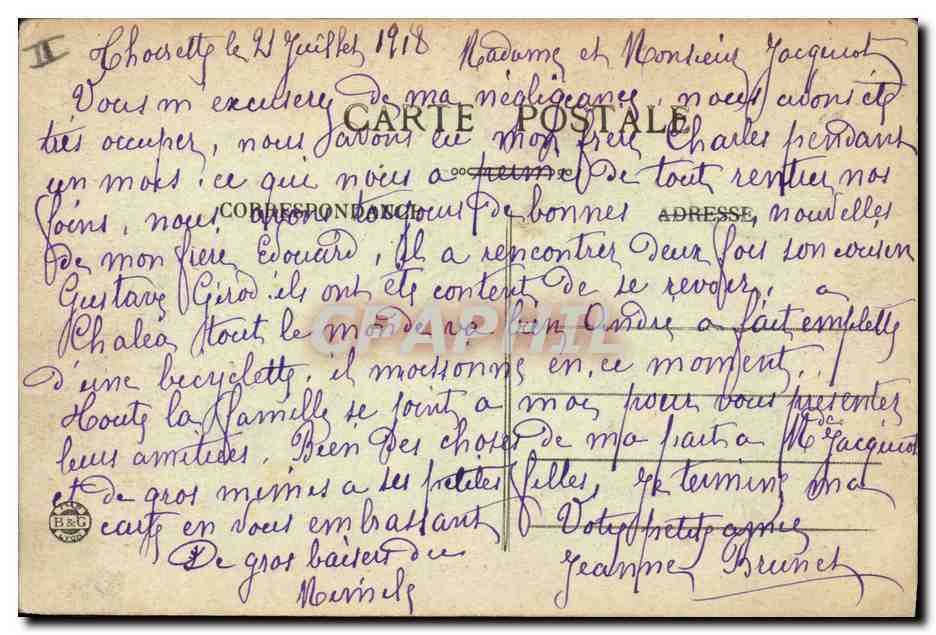 II
Thoirette le 21 Juillet 1918 Madame et Monsieur Jacquinot
Vous m'excuserez de ma négligeance, nous avons été
CARTE POSTALE
très occuper, nous avons eu mon frère Charles pendant
un mois. ce qui nous a permis de tout rentrer nos
foins, nous avons toujours de bonnes nouvelles
CORRESPONDANCE ADRESSE
de mon frère Edouard, Il a rencontrer deux fois son cousin
Gustave Girod ils ont étés content de se revoir. a
Chaléa tout le monde va bien André a fait emplette
CPAPHIL
d'une becyclette, il moissonne en ce moment..
Toute la famille se joint a moi pour vous présenter
leurs amitiées. Bien des choses de ma part a Mde Jacquinot
et de gros mimis a ses petites filles, je termine ma
carte en vous embrassant Votre petite amie
B&G
LYON
De gros baisers du Jeanne Brunet